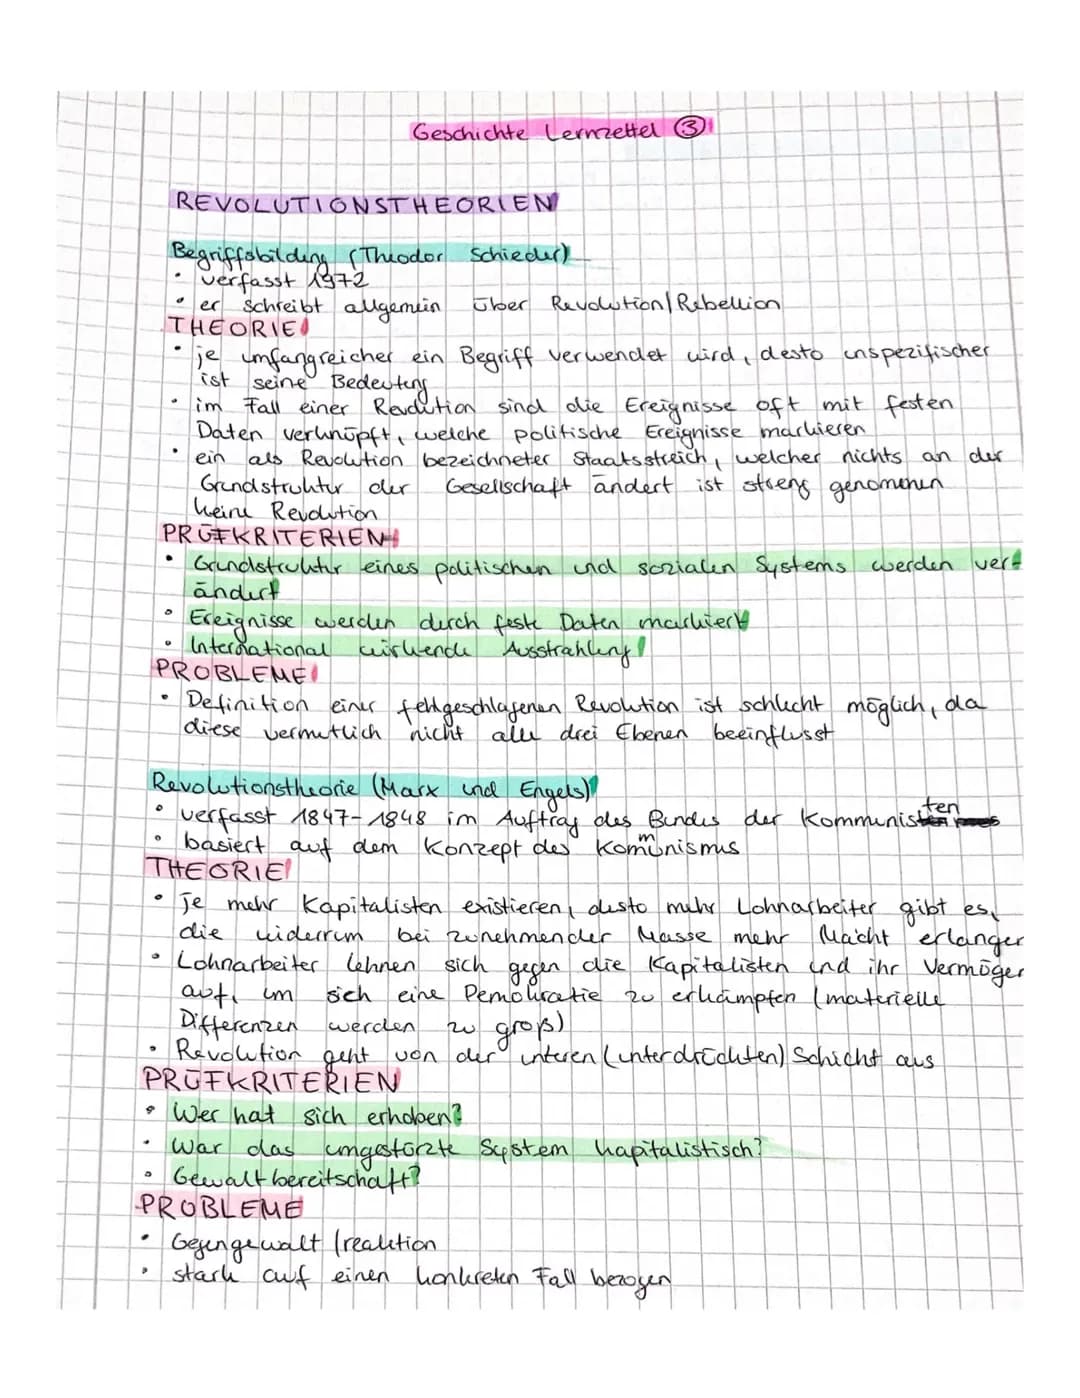 Geschichte Lernzettel ③
REVOLUTIONSTHEORIEN
Begriffsbildung (Theodor Schieder)
• verfasst 1972
• er schreibt allgemein über Revolution/Rebellion
THEORIE
• je umfangreicher ein Begriff verwendet wird, desto unspezifischer
ist seine Bedeutung
• im Fall einer Revolution sind die Ereignisse oft mit festen
Daten verknüpft, welche politische Ereignisse markieren
• ein als Revolution bezeichneter Staatsstreich, welcher nichts an der
Grundstruktur der Gesellschaft ändert ist streng genommen
keine Revolution
PRÜFKRITERIEN
• Grundstruktur eines politischen und sozialen Systems werden ver-
ändert
• Ereignisse werden durch feste Daten markiert
• International wirkende Ausstrahlung
PROBLEME
• Definition einer fehlgeschlagenen Revolution ist schlecht möglich, da
diese vermutlich nicht alle drei Ebenen beeinflusst
Revolutionstheorie (Marx und Engels)
• verfasst 1847-1848 im Auftrag des Bundes der Kommunisten
• basiert auf dem Konzept des Kommunismus
THEORIE
• je mehr Kapitalisten existieren, desto mehr Lohnarbeiter gibt es,
die widerrum bei zunehmender Masse mehr Macht erlangen
• Lohnarbeiter lehnen sich gegen die Kapitalisten und ihr Vermögen
auf, um sich eine Demokratie zu erkämpfen (materielle
Differenzen werden zu groß)
• Revolution geht von der unteren (unterdrückten) Schicht aus
PRÜFKRITERIEN
• Wer hat sich erhoben?
• War das umgestürzte System kapitalistisch?
• Gewaltbereitschaft?
PROBLEME
• Gegengewalt /reaktion
• stark auf einen konkreten Fall bezogen